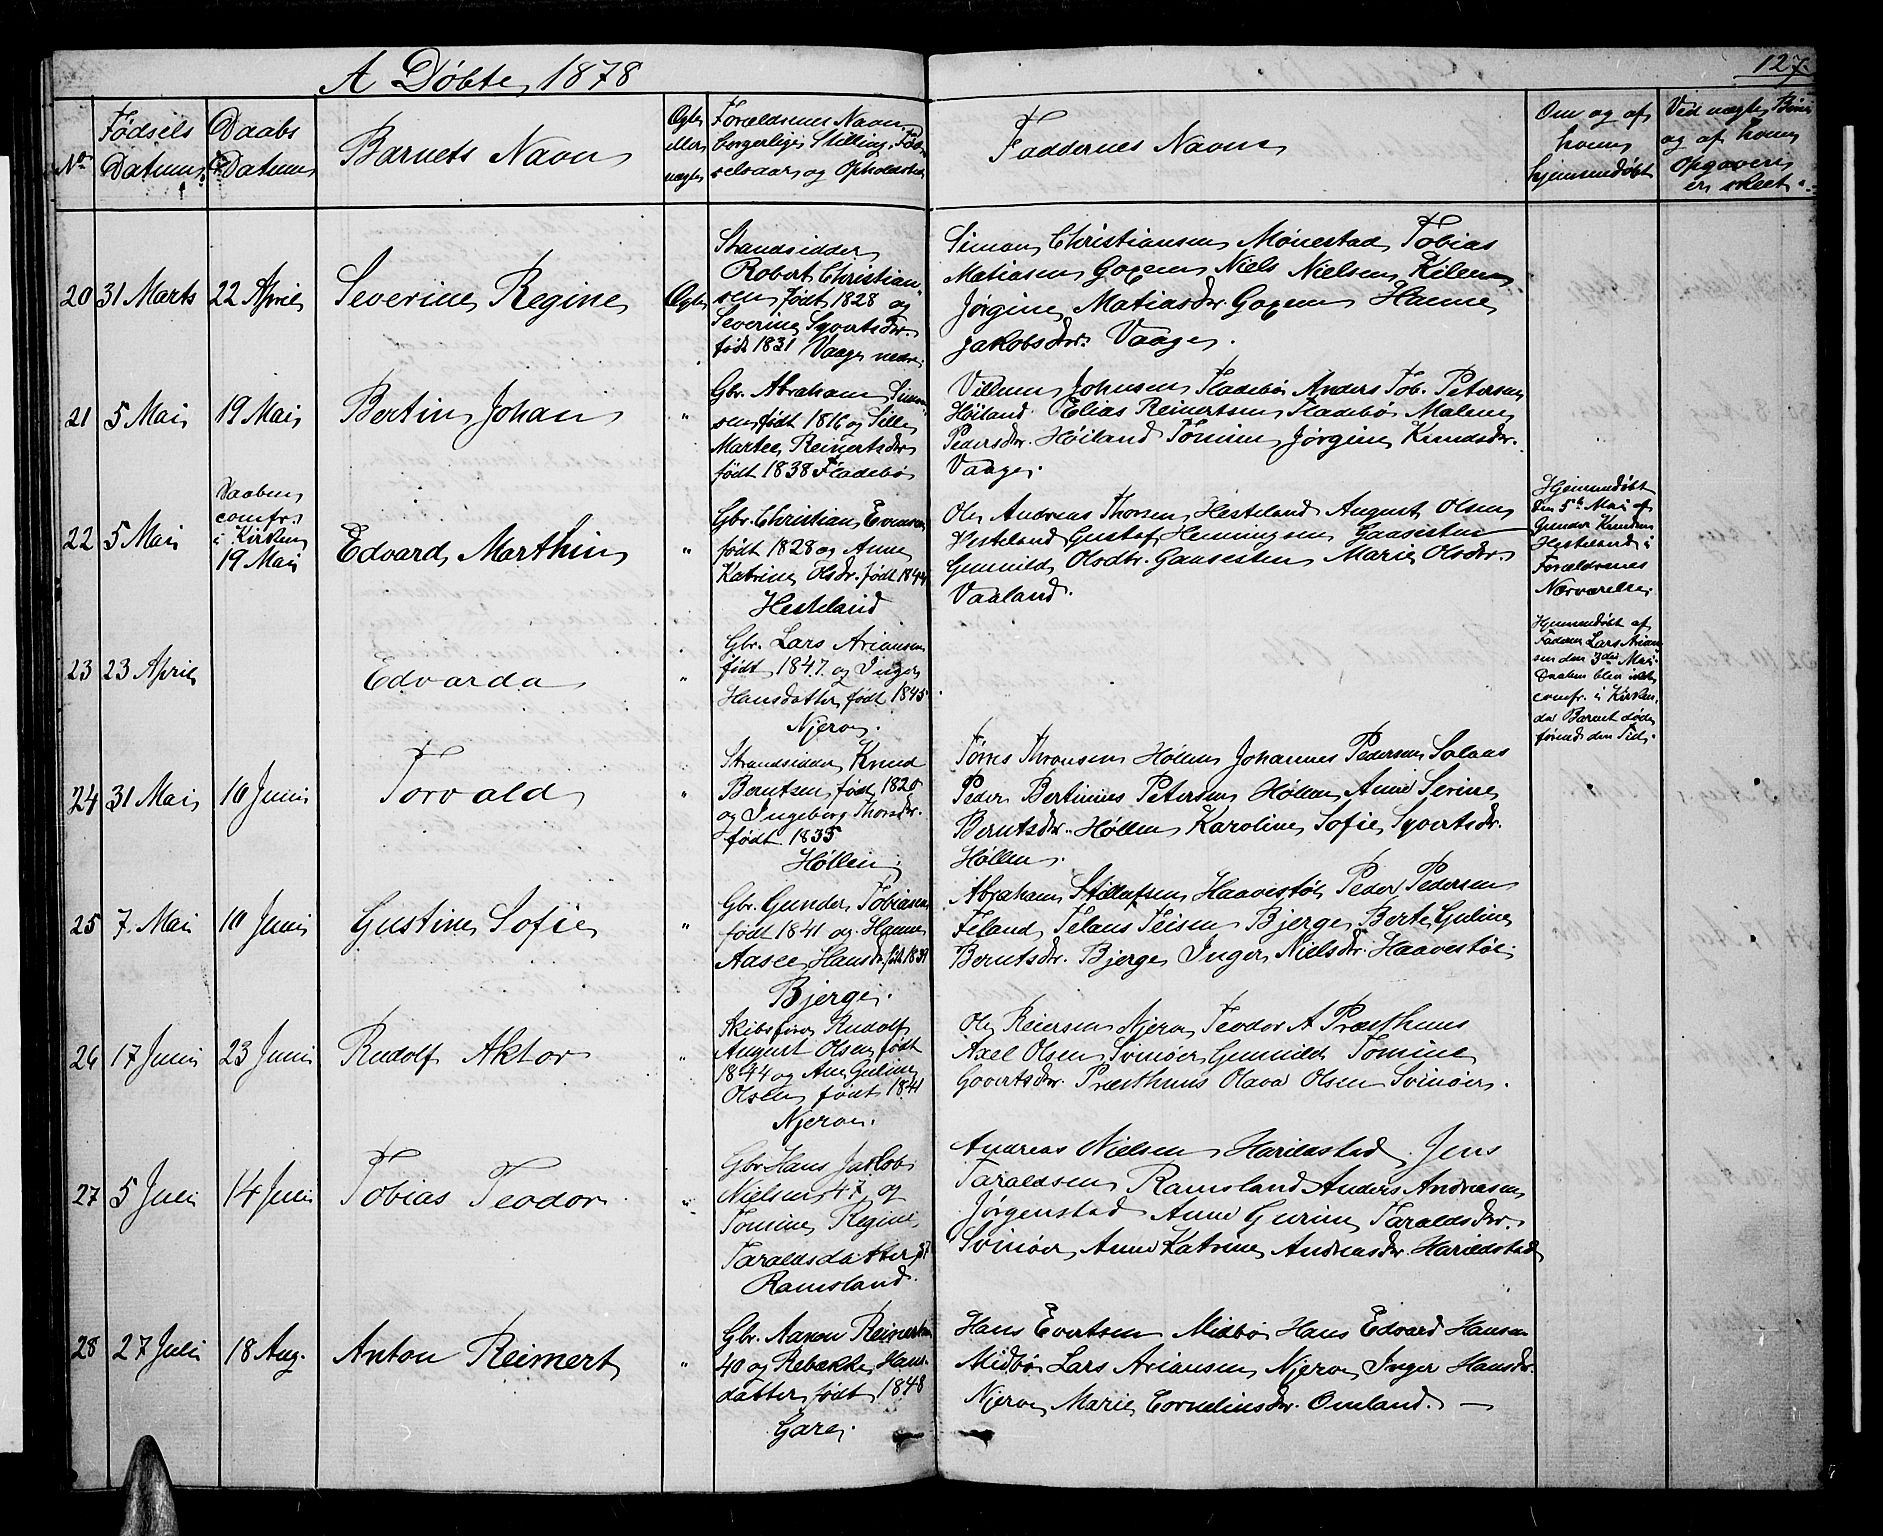 A Døbte 1878
127.
No
Fødsels Datum
Daabs Datum
Barnets Navn
Ægte eller uægte
Forældrenes Navn, borgerlige Stilling, Fødselsaar og Opholdssted
Faddernes Navn
Om og af hvem hjemmedøbt
Ved uægte Børn og af hvem Opgaven er skeet.
20 31 Marts 22 April Severine Regine Ægte
Strandsidder
Robert Christian-
sen født 1828 og
Severine Syvertsdr.
født 1831 Vaage nedre.
Simon Christiansen Mønestad Tobias
Matiasen Goxem Niels Nielsen Kilen
Jørgine Matiasdr Goxem Hanne
Jakobsdr. Vaage.
21 5 Mai 19 Mai Bertin Johan "
Gbr. Abraham Simon-
sen født 1816 og Sille
Martee Reinertsdr
født 1838 Fladebø
Villum Johnsen Fladebø Anders Tob. Petersen
Høiland Elias Reinertsen Fladebø Malene
Pedersdr. Høiland Tomine Jørgine Knudsdr.
Vaage.
22 5 Mai
Daaben
comfr.
i Kirken
19 Mai
Edvard Marthin "
Gbr. Christian Evensen
født 1828 og Anne
Katrine Olsdr. født 1844
Hesteland
Ole Andreas Thorsen Hesteland August Olsen
Hesteland Gustaf Henningsen Gaasesten
Gunnild Olsdtr. Gaasesten Marie Olsdr.
Vaaland.
Hjemmedøbt
den 5te Mai af
Gunder Knudsen
Hesteland i
Forældrenes
Nærværelse.
23 23 April Edvarda "
Gbr. Lars Ariansen
født 1847 og Inger
Hansdatter født 1845
Njerve.
Hjemmedøbt af
Faderen Lars Arian-
sen den 3die Mai.
Daaben blev ikke
comfr. i Kirken,
da Barnet døde
førend den Tid.
24 31 Mai 10 Juni Torvald "
Strandsidder Knud
Berntsen født 1820
og Ingeborg Thorsdr.
født 1835
Høllen.
Tørres Thronsen Høllen Johannes Pedersen Salaas
Peder Bertinius Petersen Høllen Anne Serine
Berntsdr. Høllen Karoline Sofie Syvertsdr.
Høllen.
25 7. Mai 10 Juni Gustine Sofie "
Gbr. Gunder Tobiasen
født 1841 og Hanne
Aasee Hansdr født 1839
Bjerge.
Abraham Stillufsen Haavestøl Peder Pedersen
Feland Telaus Teisen Bjerge Berte Guline
Berntsdr. Bjerge Inger Nielsdr. Haavestøl
26 17 Juni 23 Juni Rudolf Aktor "
Skibsfører Rudolf
August Olsen født
1844 og Ane Guline
Olsen født 1841
Njerve.
Ole Reiersen Njerve Teodor A Præsthuus
Axel Olsen Svinøer Gunnild Tomine
Govertsdr. Præsthuus Olava Olsen Svinøer.
27 5 Juli 14 Juli Tobias Teodor "
Gbr Hans Jakob
Nielsen 47 og
Tomine Regine
Taraldsdatter 57
Ramsland.
Andreas Nielsen Harildstad Jens
Taraldsen Ramsland Anders Andreasen
Jørgenstad Anne Gurine Taraldsdr.
Svinøer Anne Katrine Andreasdr. Harildstad
28 27 Juli 18 Aug. Anton Reimert "
Gbr. Aanon Reimertsen
40 og Rebække Hans-
datter født 1848
Gare.
Hans Evertsen Midbø Hans Edvard Hansen
Midbø Lars Ariansen Njerve Inger Hansdr.
Njerve Marie Corneliusdr. Omland. —